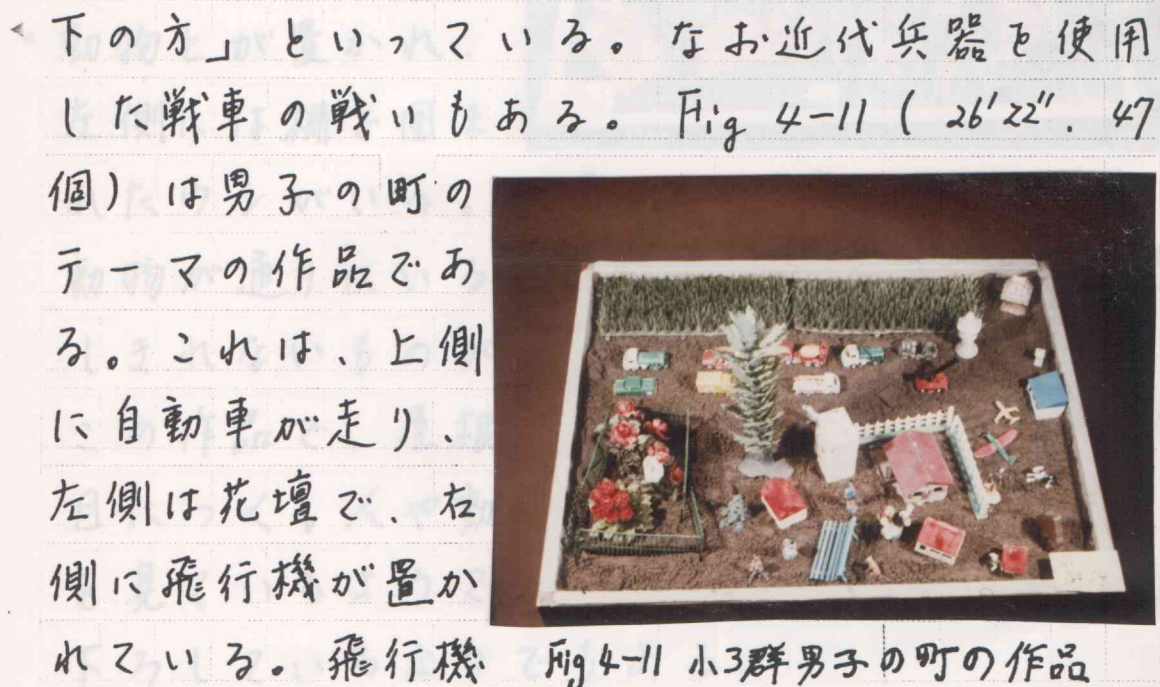 下の方」といっている。なお近代兵器を使用
した戦車の戦いもある。Fig 4-11 ( 26'22". 47
個) は男子の町の
テーマの作品であ
る。これは、上側
に自動車が走り、
左側は花壇で、右
側に飛行機が置か
れている。飛行機
Fig 4-11 小3群男子の町の作品